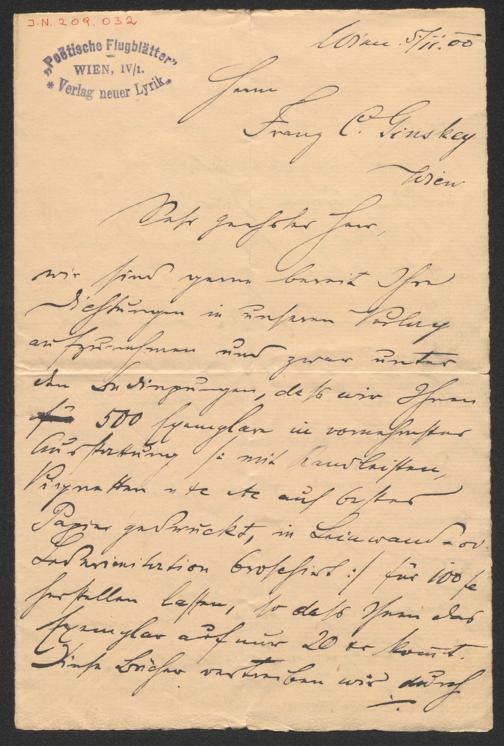 J.N. 209.032
"Poëtische Flugblätter"
WIEN, IV/1.
* Verlag neuer Lyrik. *
Wien 5/II. 00
Herrn
Franz C. Ginskey
Wien
Sehr geehrter Herr,
wir sind gerne bereit Ihre
Dichtungen in unseren Verlag
aufzunehmen und zwar unter
den Bedingungen, daß wir Ihnen
500 Exemplare in vornehmster
Ausstattung /: mit Randleisten,
Vignetten etc etc auf bestes
Papier gedruckt, in Leinwand od
Lederimitation broschirt :/ für 100 fl
herstellen lassen, so daß Ihnen das
Exemplar auf nur 20 kr kommt.
Diese Bücher vertreiben wir durch